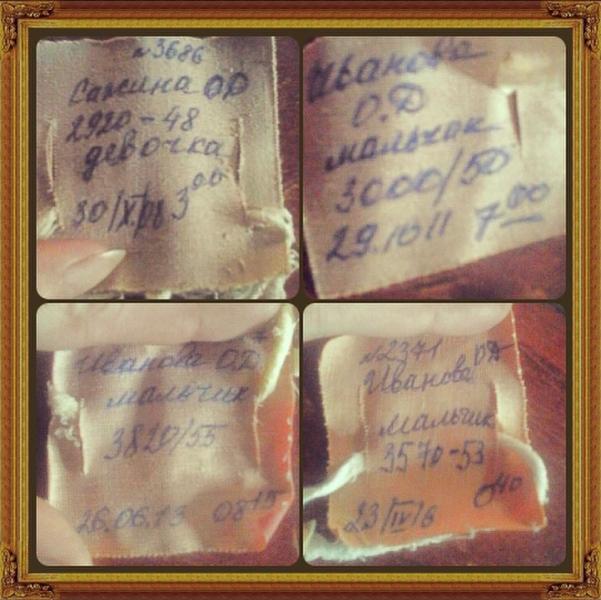 №3686
Сажина ОД
2920-48
девочка
30/XI/08 3⁰⁰
Иванова
О.Д
мальчик
3000/50
29.10 11 7⁰⁰
Иванова О.Д
мальчик
3820/55
26.06.13 08¹⁵
№2371
Иванова ОД
мальчик
3570-53
23/IV/6 0⁴⁰